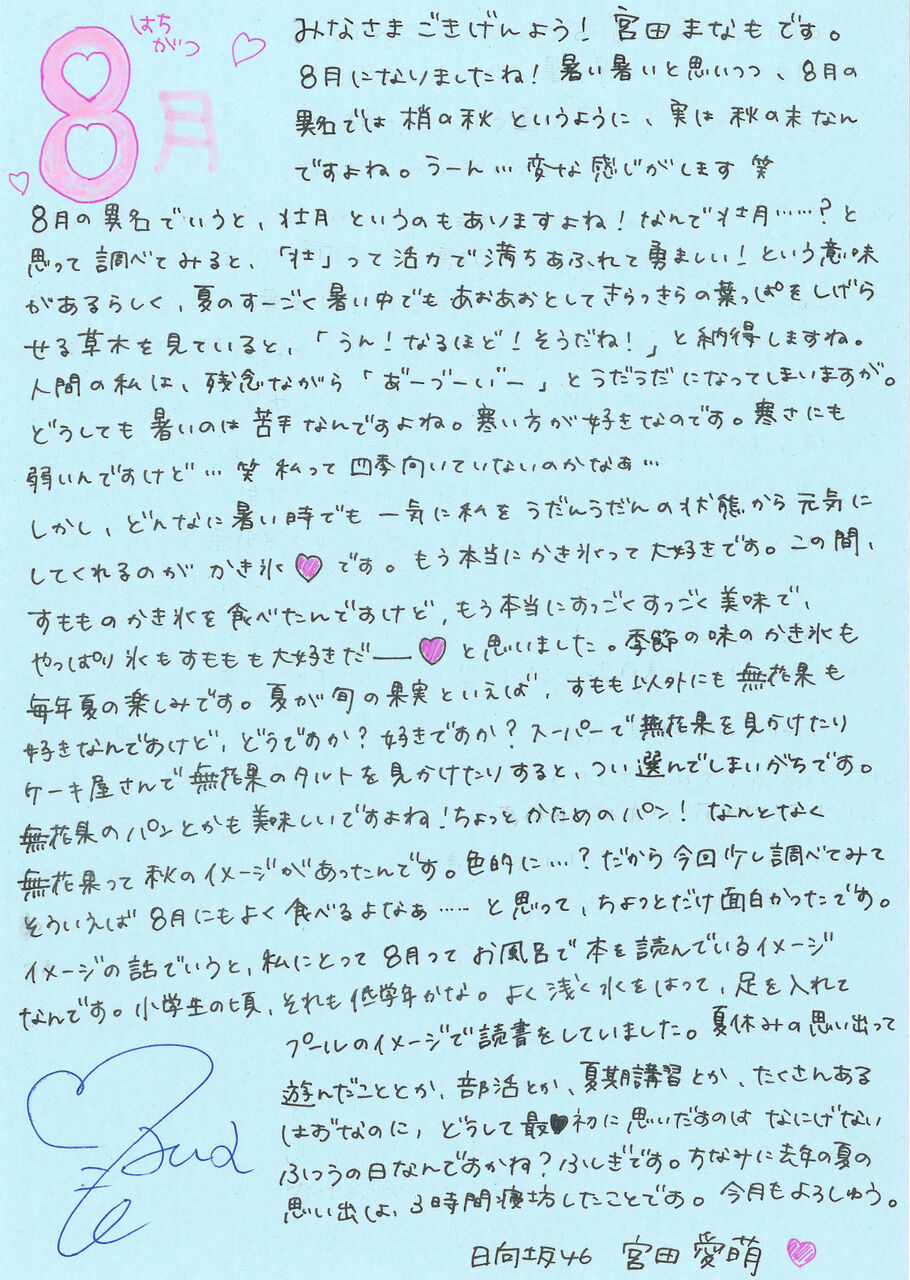 はちがつ
8月
みなさま ごきげんよう! 宮田まなもです。
8月になりましたね! 暑い暑いと思いつつ、8月の
異名では 梢の秋 というように、実は 秋の末なん
ですよね。うーん… 変な感じがします 笑
8月の異名でいうと、壮月 というのもありますよね! なんで壮月……? と
思って調べてみると、「壮」って活力で満ちあふれて勇ましい! という意味
があるらしく、夏のすーごく暑い中でも あおあおとしてきらっきらの葉っぱをしげら
せる草木を見ていると、「うん! なるほど! そうだね! 」と納得しますね。
人間の私は、残念ながら「あ゛ーづーい゛ー」とうだうだになってしまいますが。
どうしても 暑いのは 苦手なんですよね。寒い方が好きなのです。寒さにも
弱いんですけど… 笑 私って四季向いていないのかなぁ…
しかし、どんなに暑い時でも 一気に私を うだんうだんの状態から元気に
してくれるのが かき氷♥です。もう本当にかき氷って大好きです。この間、
すもものかき氷を食べたんですけど、もう本当にすっごくすっごく美味で、
やっぱり氷もすももも大好きだ――♥と思いました。季節の味のかき氷も
毎年夏の楽しみです。夏が旬の果実といえば、すもも以外にも無花果も
好きなんですけど、どうですか? 好きですか? スーパーで無花果を見かけたり
ケーキ屋さんで無花果のタルトを見かけたりすると、つい選んでしまいがちです。
無花果のパンとかも美味しいですよね! ちょっとかためのパン! なんとなく
無花果って秋のイメージがあったんです。色的に…? だから今回少し調べてみて
そういえば 8月にもよく食べるよなぁ……と思って、ちょっとだけ面白かったです。
イメージの話でいうと、私にとって8月ってお風呂で本を読んでいるイメージ
なんです。小学生の頃、それも低学年かな。よく浅く水をはって、足を入れて
プールのイメージで読書をしていました。夏休みの思い出って
遊んだこととか、部活とか、夏期講習とか、たくさんある
はずなのに、どうして最♥初に思いだすのは なにげない
ふつうの日なんですかね? ふしぎです。ちなみに去年の夏の
思い出は、3時間寝坊したことです。今月もよろしゅう。
日向坂46 宮田愛萌 ♥